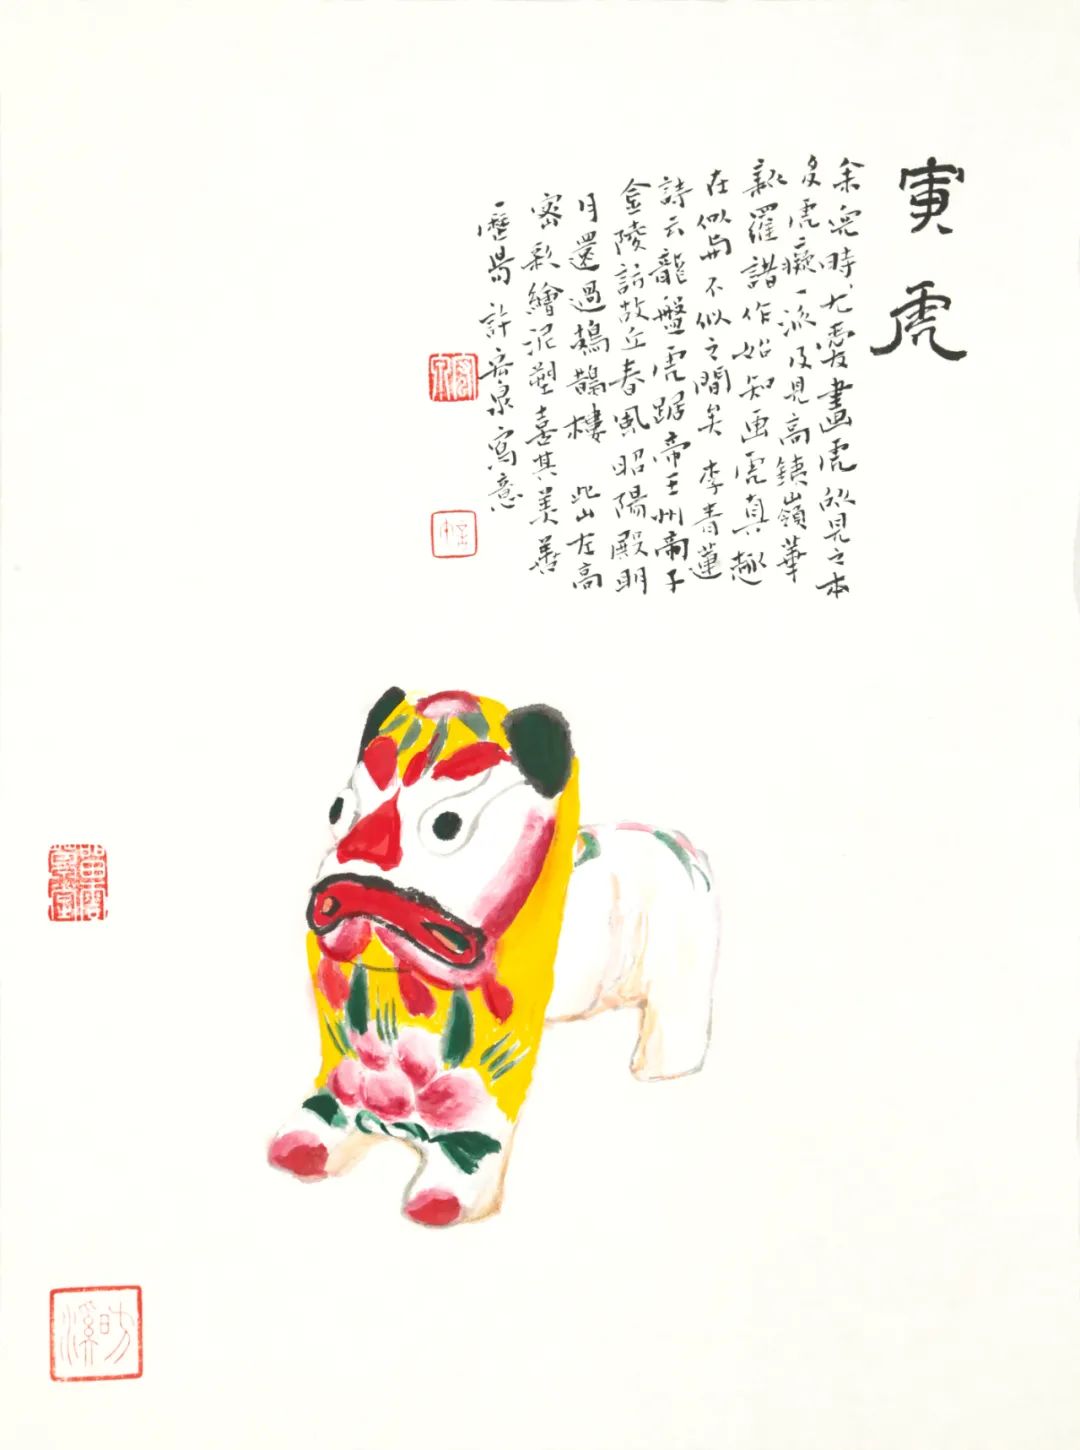 寅虎
余兒時尤愛畫虎所見之本
多虎癡一派及見高鐵嶺華
新羅諸作始知画虎真趣
在似與不似之間矣 李青蓮
詩云龍盤虎踞帝王州帝子
金陵訪故丘春風昭陽殿明
月還過鳷鵲樓 此山左高
密彩繪泥塑喜其美善
歷昜 許宏泉寫意
宏泉
留雲草堂